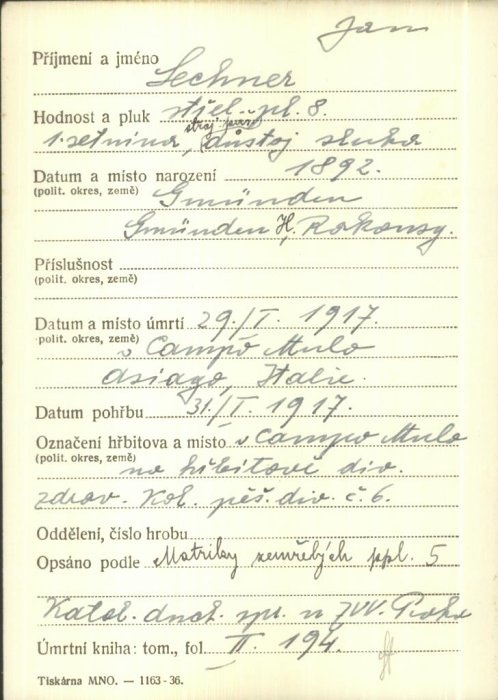 Jan
Příjmení a jméno Lechner
Hodnost a pluk střel. pl. 8.
1. setnina, (důstoj sluha
Datum a místo narození 1892.
(polit. okres, země) Gmünden
Gmünden H. Rakousy.
Příslušnost
(polit. okres, země)
Datum a místo úmrtí 29./I. 1917.
(polit. okres, země) v Campo Mulo
Asiago, Italie.
Datum pohřbu 31./I. 1917.
Označení hřbitova a místo v Campo Mulo
(polit. okres, země) na hřbitově div.
zdrav. kol. pěš. div. č. 6.
Oddělení, číslo hrobu
Opsáno podle Matriky zemřelých ppl. 5
Katol. duch. spr. u ZVV. Praha
Úmrtní kniha: tom., fol. II. 194.
Tiskárna MNO. — 1163-36.